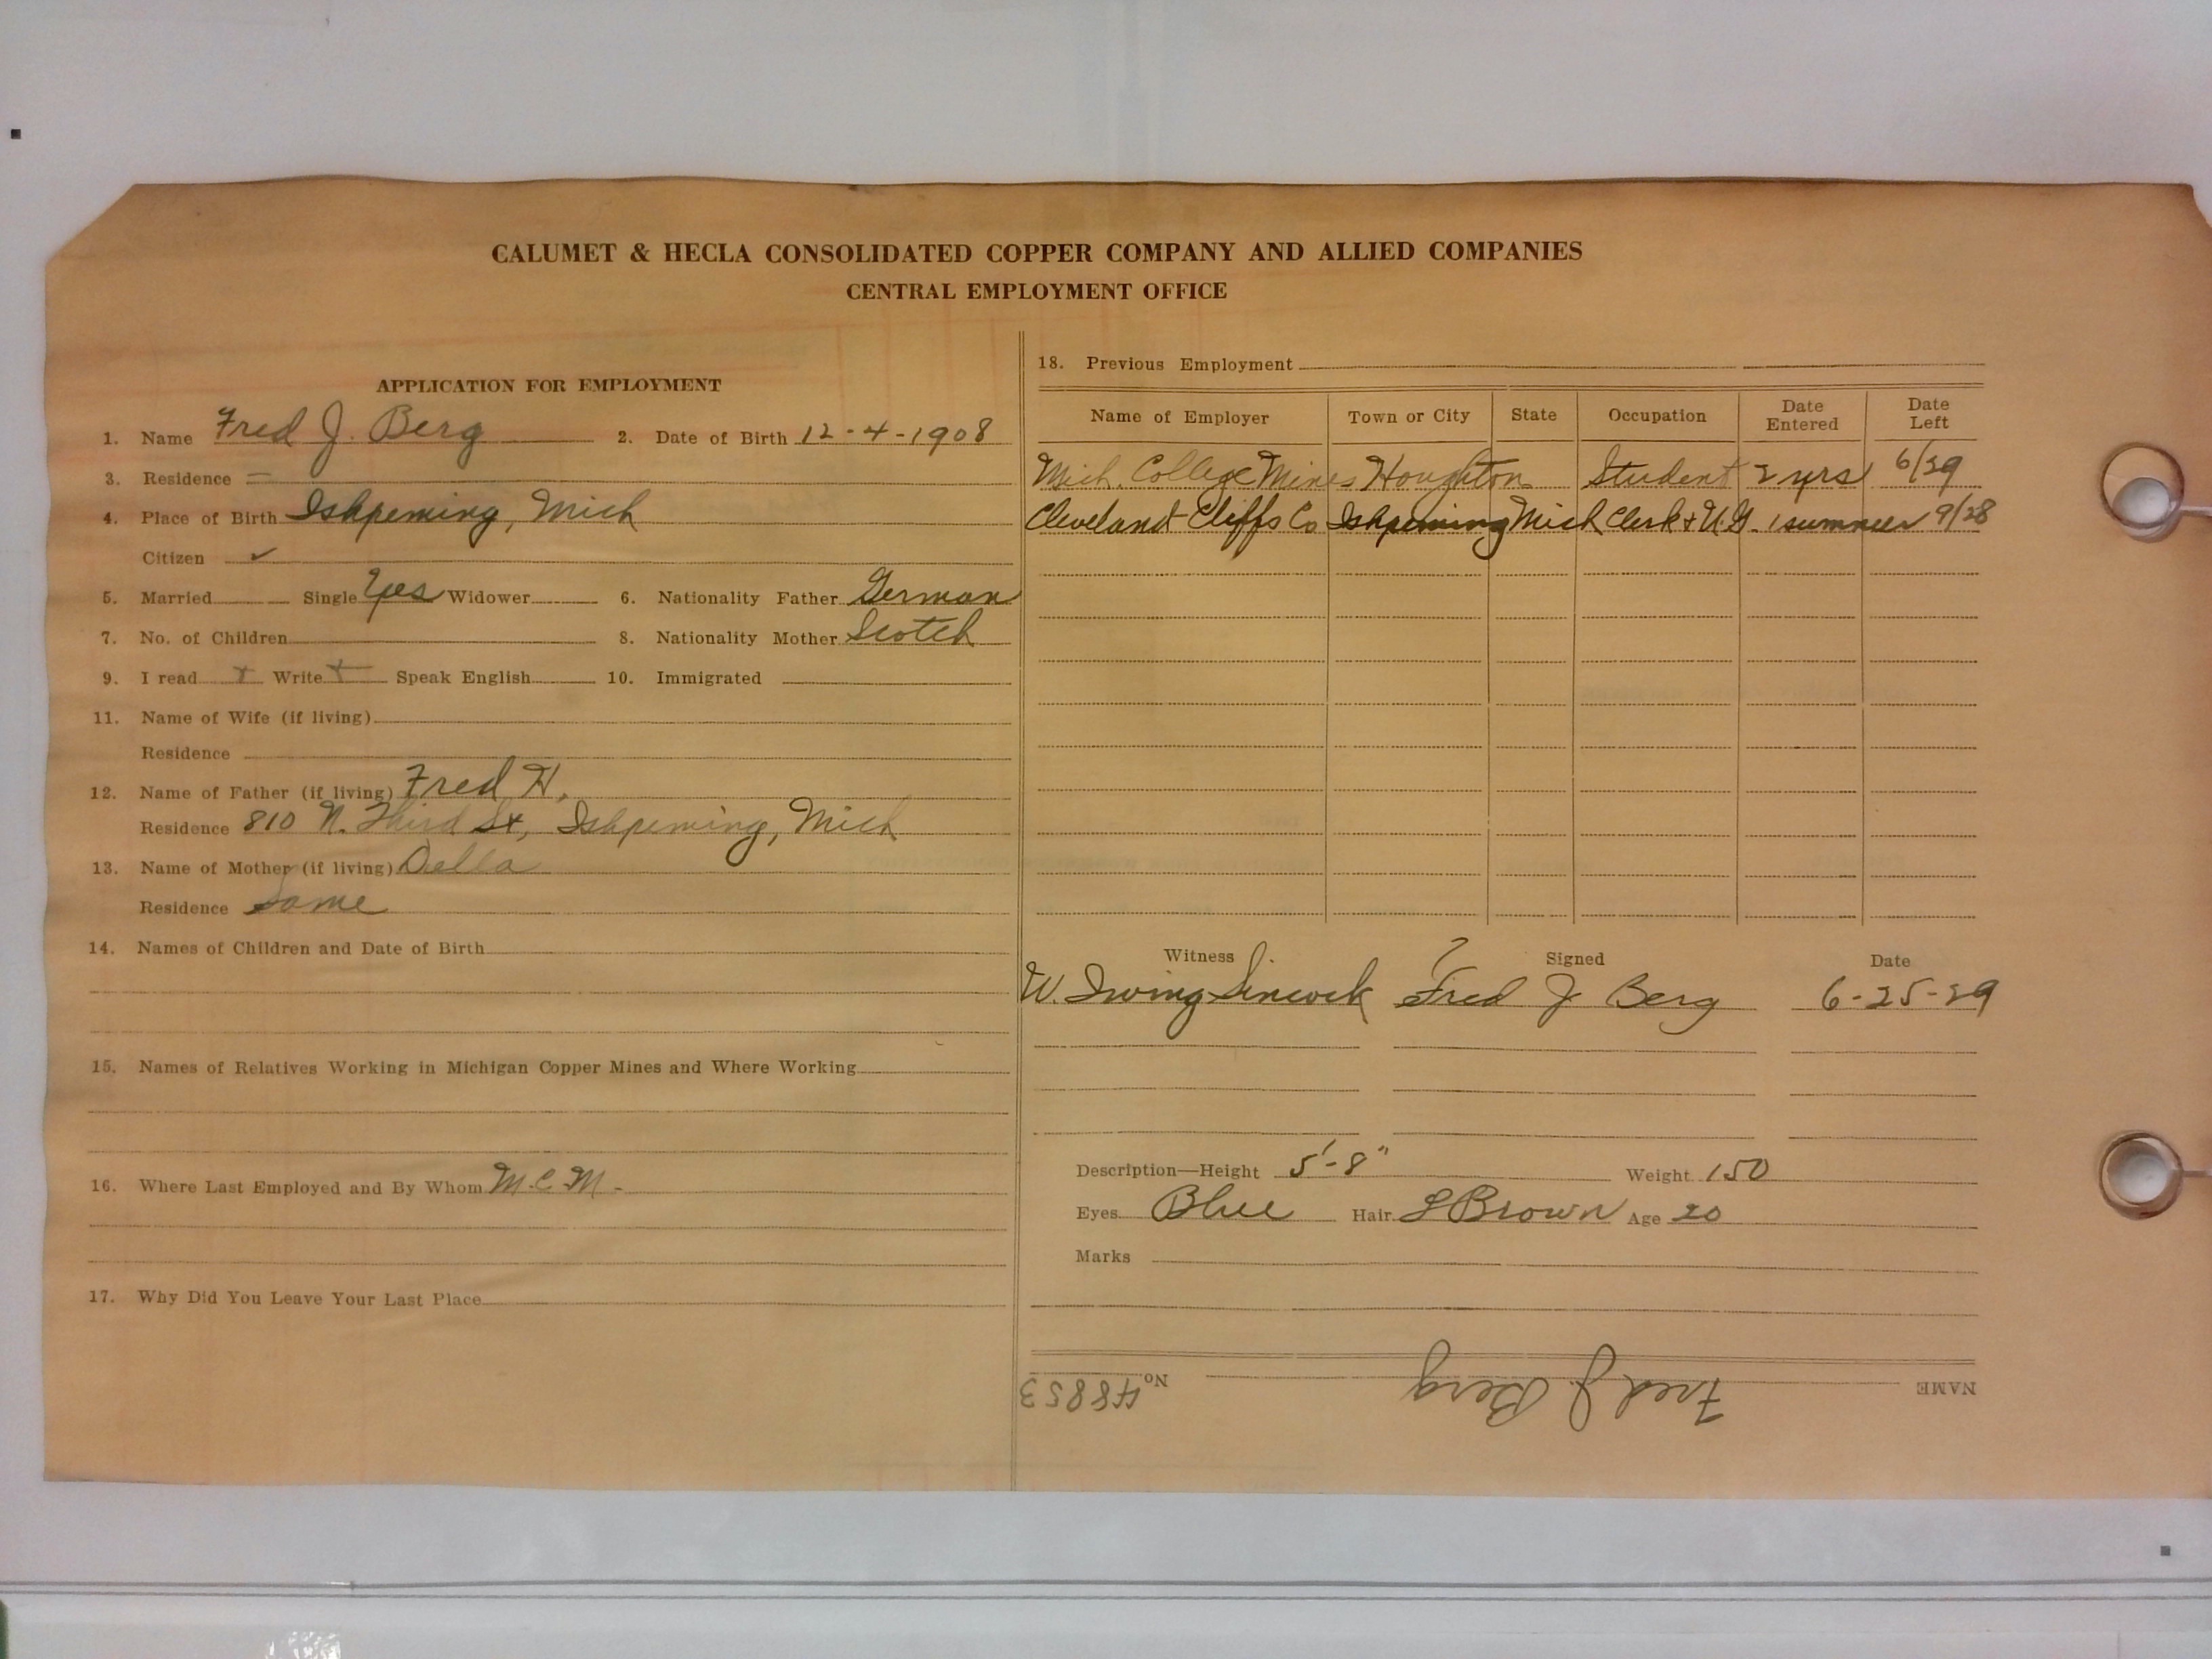 CALUMET & HECLA CONSOLIDATED COPPER COMPANY AND ALLIED COMPANIES
CENTRAL EMPLOYMENT OFFICE
APPLICATION FOR EMPLOYMENT
1. Name Fred J. Berg 2. Date of Birth 12-4-1908
3. Residence —
4. Place of Birth Ishpeming, Mich
Citizen ✓
5. Married Single Yes Widower 6. Nationality Father German
7. No. of Children 8. Nationality Mother Scotch
9. I read + Write + Speak English 10. Immigrated
11. Name of Wife (if living)
Residence
12. Name of Father (if living) Fred H.
Residence 810 N. Third St, Ishpeming, Mich
13. Name of Mother (if living) Della
Residence Same
14. Names of Children and Date of Birth
15. Names of Relatives Working in Michigan Copper Mines and Where Working
16. Where Last Employed and By Whom M.C.M.
17. Why Did You Leave Your Last Place
18. Previous Employment
Name of Employer Town or City State Occupation Date Entered Date Left
Mich. College Mines Houghton Student 2 yrs 6/29
Cleveland Cliffs Co Ishpeming Mich Clerk + U.G. 1 summer 9/28
Witness Signed Date
W. Irving Fred J Berg 6-25-29
Description—Height 5'-8" Weight 150
Eyes Blue Hair L Brown Age 20
Marks
NAME Fred J. Berg No. 48853